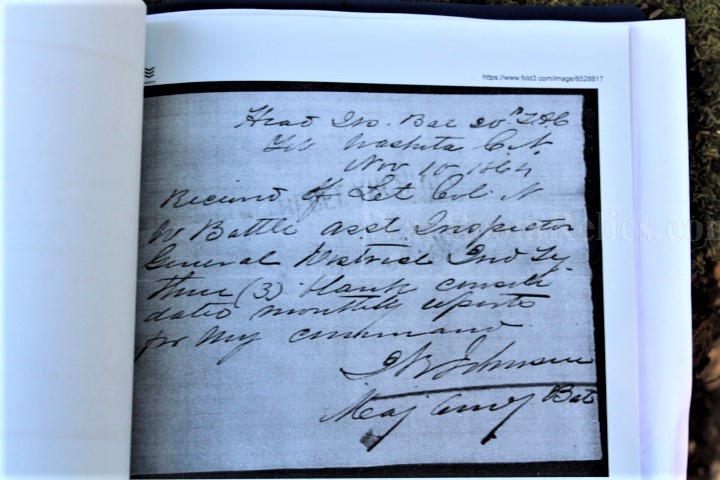 https://www.fold3.com/image/8528817
Head Qrs. Bat 20th T.D.C
Ft Washita C.N.
Nov 10 1864
Received of Let Col. N
W Battle asst Inspector
General District Ind Ty
three (3) blank consoli
dated monthly reports
for my command
Johnson
Maj Comg Bat